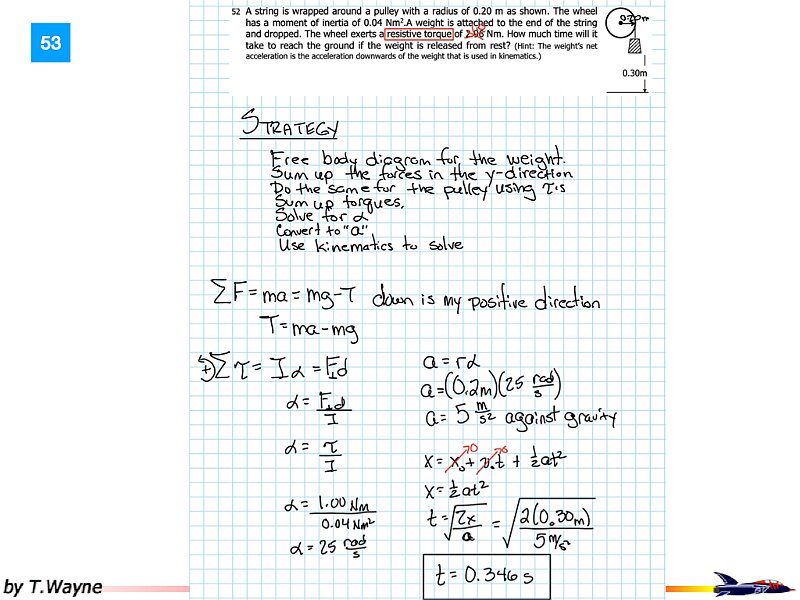 53
52 A string is wrapped around a pulley with a radius of 0.20 m as shown. The wheel
has a moment of inertia of 0.04 Nm².A weight is attached to the end of the string
and dropped. The wheel exerts a resistive torque of Nm. How much time will it
take to reach the ground if the weight is released from rest? (Hint: The weight's net
acceleration is the acceleration downwards of the weight that is used in kinematics.)
0.20m
0.30m
STRATEGY
Free body diagram for the weight.
Sum up the forces in the y-direction
Do the same for the pulley using τ's
Sum up torques.
Solve for α
Convert to "a"
Use kinematics to solve
ΣF = ma = mg-T down is my positive direction
T = ma-mg
+ Στ = Iα = F⊥d
α = F⊥d / I
α = τ / I
α = 1.00 Nm / 0.04 Nm²
α = 25 rad/s
a = rα
a = (0.2m)(25 rad/s)
a = 5 m/s² against gravity
x = x₀ + v₀t + ½at²
x = ½at²
t = √(2x/a) = √(2(0.30m) / 5 m/s²)
t = 0.346 s
by T.Wayne